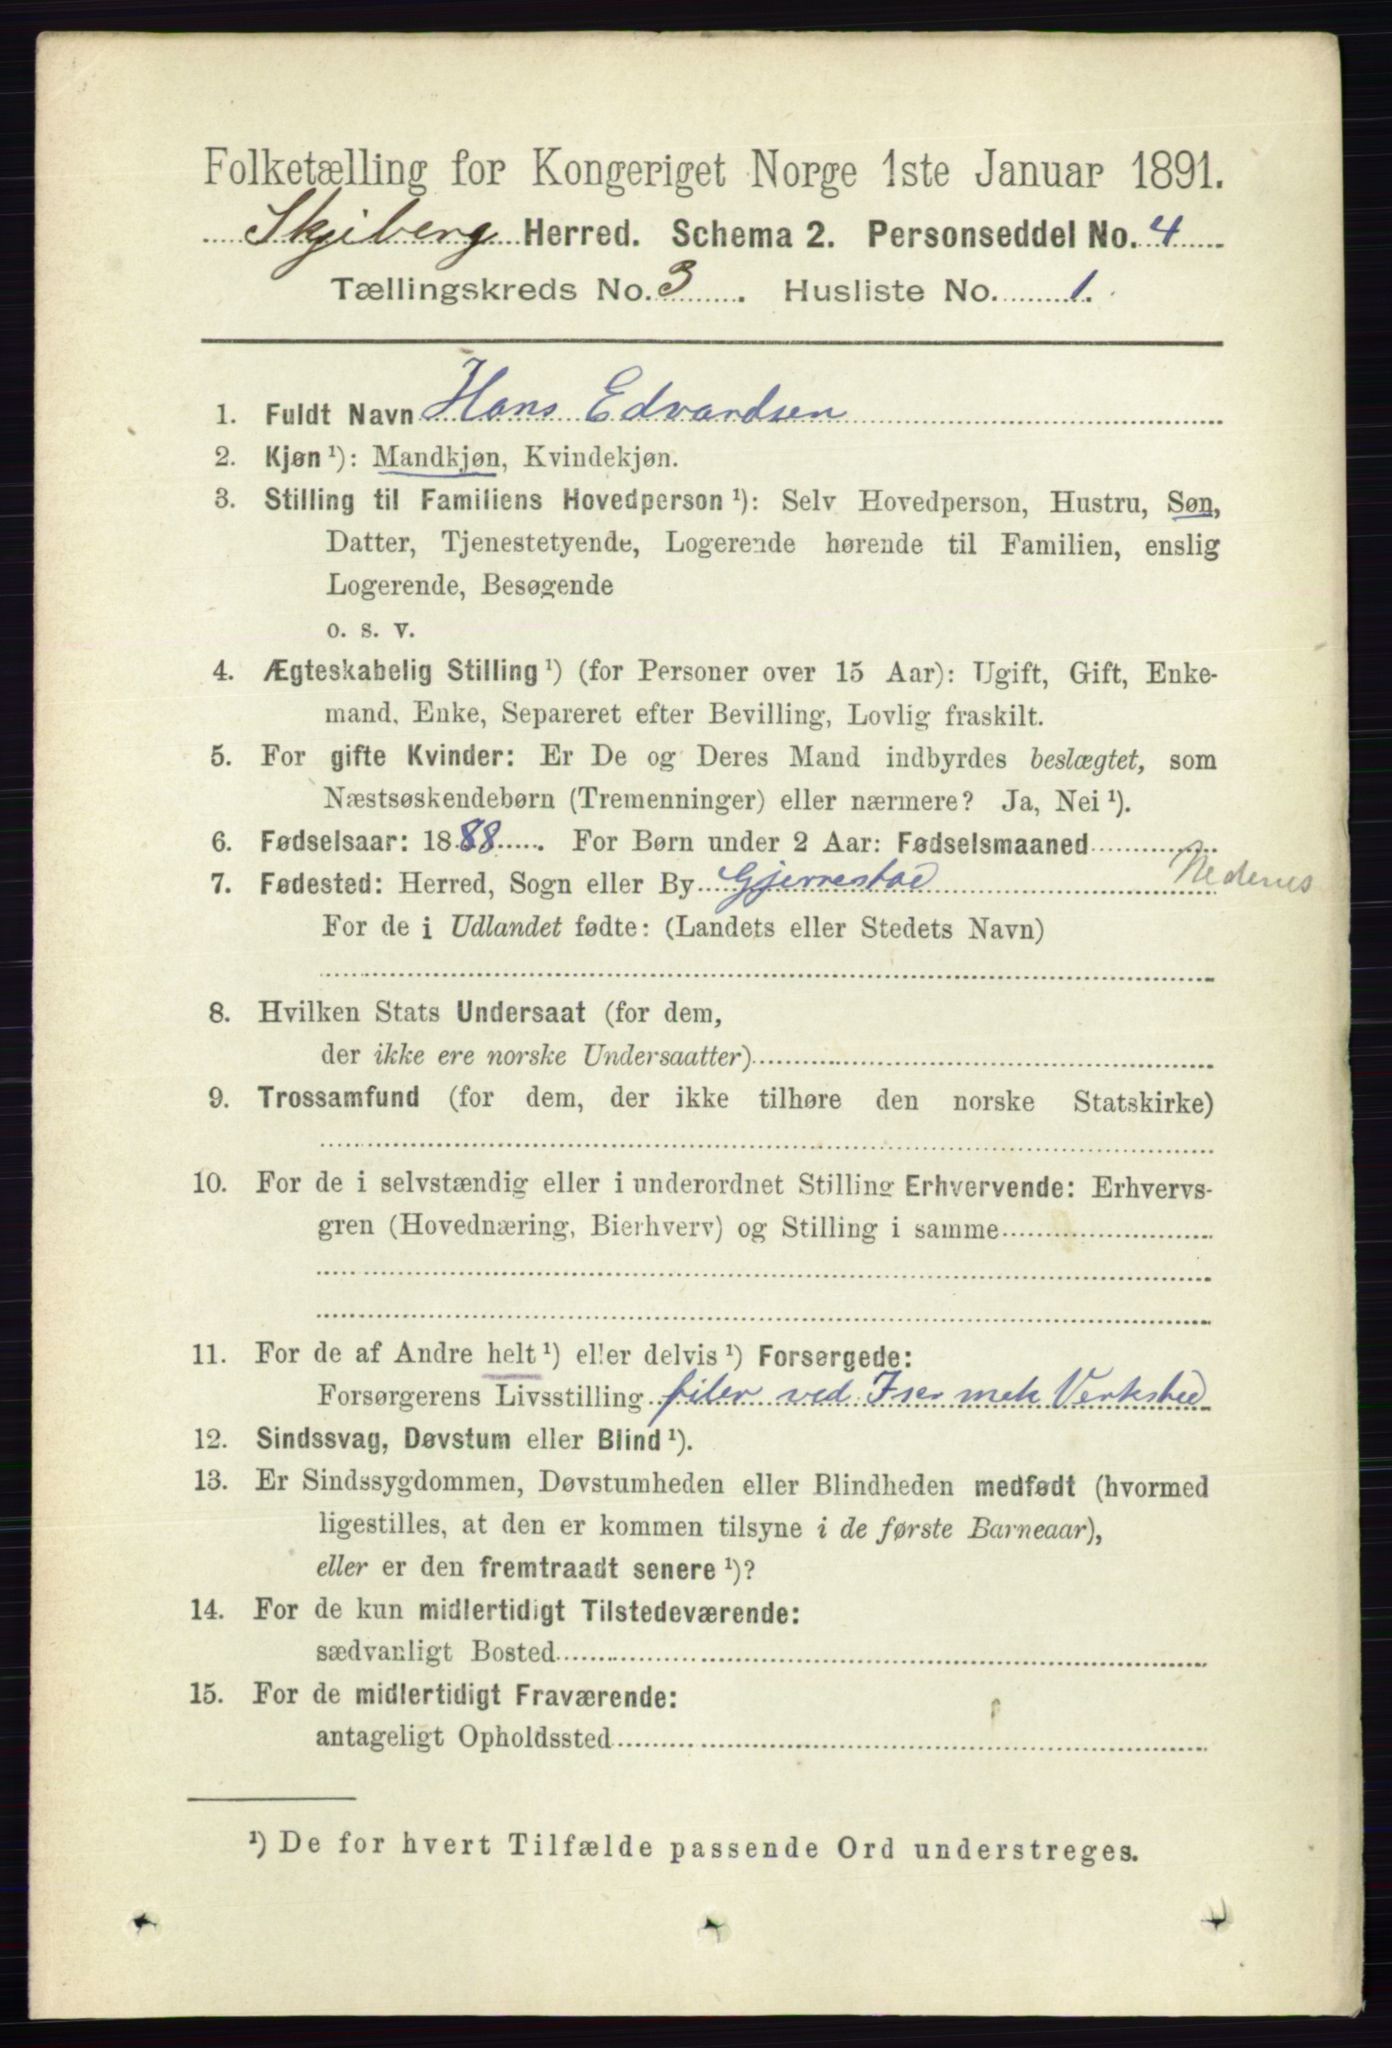 Folketælling for Kongeriget Norge 1ste Januar 1891.
Skjeberg Herred. Schema 2. Personseddel No. 4
Tællingskreds No. 3. Husliste No. 1.
1. Fuldt Navn Hans Edvardsen
2. Kjøn ¹): Mandkjøn, Kvindekjøn.
3. Stilling til Familiens Hovedperson ¹): Selv Hovedperson, Hustru, Søn,
Datter, Tjenestetyende, Logerende hørende til Familien, enslig
Logerende, Besøgende
o. s. v.
4. Ægteskabelig Stilling ¹) (for Personer over 15 Aar): Ugift, Gift, Enke-
mand, Enke, Separeret efter Bevilling, Lovlig fraskilt.
5. For gifte Kvinder: Er De og Deres Mand indbyrdes beslægtet, som
Næstsøskendebørn (Tremenninger) eller nærmere? Ja, Nei ¹).
6. Fødselsaar: 1888. For Børn under 2 Aar: Fødselsmaaned
7. Fødested: Herred, Sogn eller By Gjerrestad Nedenes
For de i Udlandet fødte: (Landets eller Stedets Navn)
8. Hvilken Stats Undersaat (for dem,
der ikke ere norske Undersaatter)
9. Trossamfund (for dem, der ikke tilhøre den norske Statskirke)
10. For de i selvstændig eller i underordnet Stilling Erhvervende: Erhvervs-
gren (Hovednæring, Bierhverv) og Stilling i samme
11. For de af Andre helt ¹) eller delvis ¹) Forsørgede:
Forsørgerens Livsstilling filer ved Ise mek Verksted
12. Sindssvag, Døvstum eller Blind ¹).
13. Er Sindssygdommen, Døvstumheden eller Blindheden medfødt (hvormed
ligestilles, at den er kommen tilsyne i de første Barneaar),
eller er den fremtraadt senere ¹)?
14. For de kun midlertidigt Tilstedeværende:
sædvanligt Bosted
15. For de midlertidigt Fraværende:
antageligt Opholdssted
¹) De for hvert Tilfælde passende Ord understreges.